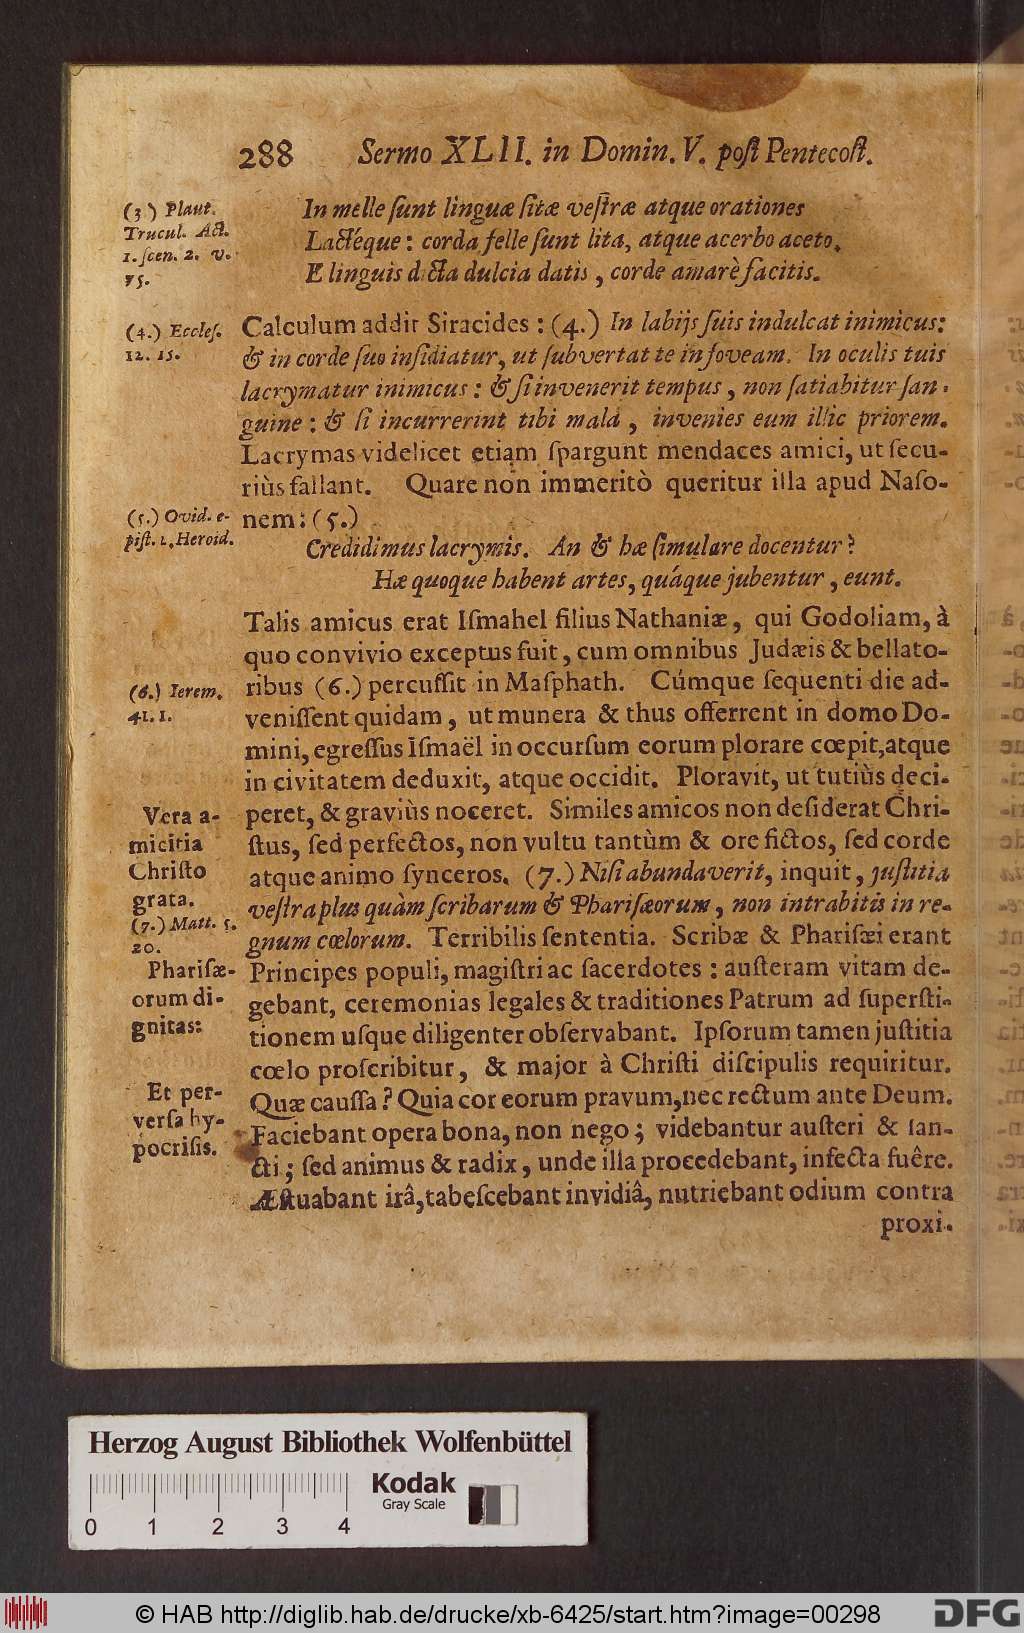 288 Sermo XLII. in Domin. V. poſt Pentecoſt.
(3) Plaut.
Trucul. Act.
1. ſcen. 2. v.
75.
In melle ſunt linguæ ſitæ veſtræ atque orationes
Lactéque: corda felle ſunt lita, atque acerbo aceto.
E linguis dicta dulcia datis, corde amarè facitis.
(4.) Eccleſ.
12. 15.
Calculum addit Siracides: (4.) In labijs ſuis indulcat inimicus:
& in corde ſuo inſidiatur, ut ſubvertat te in foveam. In oculis tuis
lacrymatur inimicus: & ſi invenerit tempus, non ſatiabitur ſan-
guine: & ſi incurrerint tibi mala, invenies eum illic priorem.
Lacrymas videlicet etiam ſpargunt mendaces amici, ut ſecu-
riùs fallant. Quare non immeritò queritur illa apud Naſo-
nem: (5.)
(5.) Ovid. e-
piſt. 1. Heroid.
Credidimus lacrymis. An & hæ ſimulare docentur?
Hæ quoque habent artes, quáque jubentur, eunt.
Talis amicus erat Iſmahel filius Nathaniæ, qui Godoliam, à
quo convivio exceptus fuit, cum omnibus Judæis & bellato-
ribus (6.) percuſſit in Maſphath. Cúmque ſequenti die ad-
(6.) Ierem.
41. 1.
veniſſent quidam, ut munera & thus offerrent in domo Do-
mini, egreſſus Iſmaël in occurſum eorum plorare cœpit, atque
in civitatem deduxit, atque occidit. Ploravit, ut tutiùs deci-
peret, & graviùs noceret. Similes amicos non deſiderat Chri-
ſtus, ſed perfectos, non vultu tantùm & ore fictos, ſed corde
atque animo ſynceros. (7.) Niſi abundaverit, inquit, juſtitia
veſtra plus quàm ſcribarum & Phariſæorum, non intrabitis in re-
gnum cœlorum. Terribilis ſententia. Scribæ & Phariſæi erant
Vera a-
micitia
Chriſto
grata.
(7.) Matt. 5.
20.
Phariſæ-
orum di-
gnitas:
Principes populi, magiſtri ac ſacerdotes: auſteram vitam de-
gebant, ceremonias legales & traditiones Patrum ad ſuperſti-
tionem uſque diligenter obſervabant. Ipſorum tamen juſtitia
cœlo proſcribitur, & major à Chriſti diſcipulis requiritur.
Quæ cauſſa? Quia cor eorum pravum, nec rectum ante Deum.
Et per-
verſa hy-
pocriſis.
Faciebant opera bona, non nego; videbantur auſteri & ſan-
cti; ſed animus & radix, unde illa procedebant, infecta fuêre.
Æſtuabant irâ, tabeſcebant invidiâ, nutriebant odium contra
proxi-
Herzog August Bibliothek Wolfenbüttel
Kodak
Gray Scale
0 1 2 3 4
© HAB http://diglib.hab.de/drucke/xb-6425/start.htm?image=00298
DFG